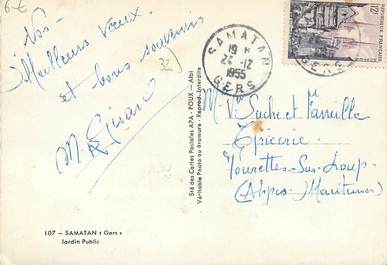 6-€
Nos
Meilleurs Voeux
et bons souvenirs
32
SAMATAN
19 H
24-12
1955
GERS
REPUBLIQUE FRANÇAISE
12
GERS
Sté des Cartes Postales APA - POUX - Albi
Véritable Photo au Bromure - Reprod. Interdite
et famille
Epicerie
Tourrettes-Sur-Loup
(Alpes Maritimes)
107 — SAMATAN « Gers »
Jardin Public